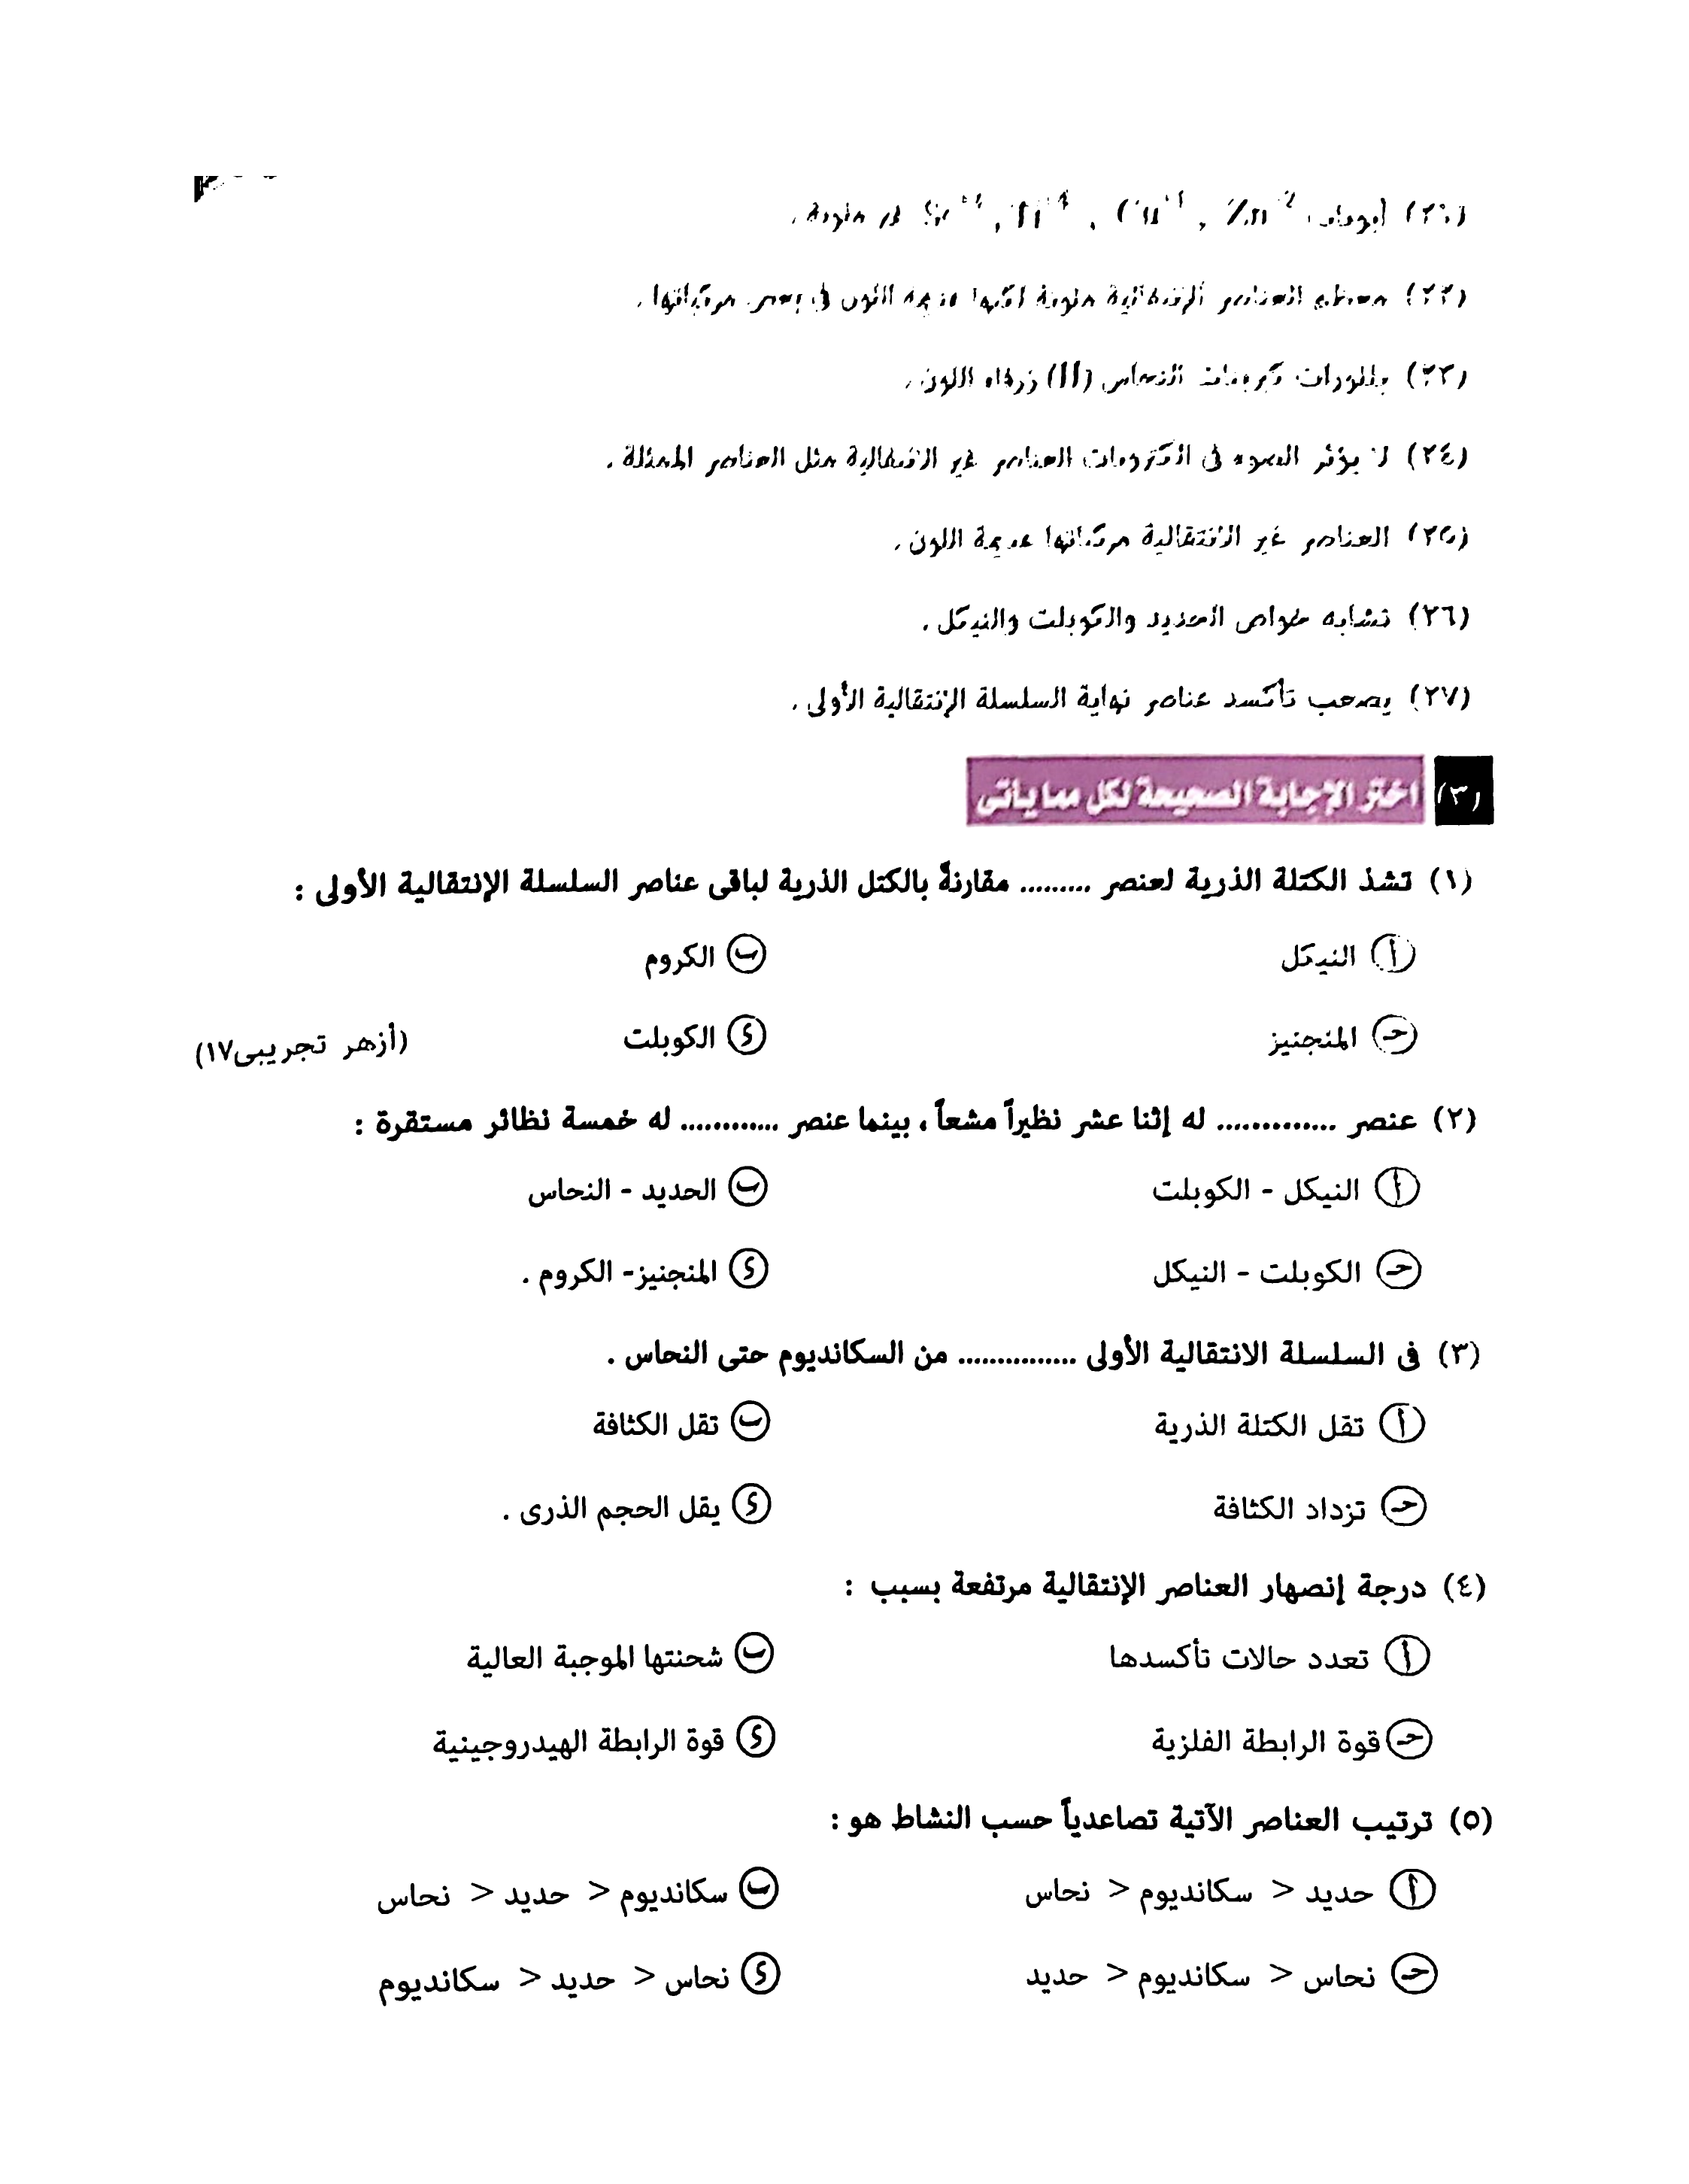 (٢١) أيونات Zn+2 , Cu+1 , Ti+4 , Sc+3 غير ملونة .
(٢٢) معظم العناصر الإنتقالية ملونة لكنها عديمة اللون فى بعض مركباتها .
(٢٣) بللورات كبريتات النحاس (II) زرقاء اللون .
(٢٤) لا يؤثر الضوء فى الكترونات العناصر غير الانتقالية مثل العناصر الممثلة .
(٢٥) العناصر غير الانتقالية مركباتها عديمة اللون .
(٢٦) تشابه خواص الحديد والكوبلت والنيكل .
(٢٧) يصعب تأكسد عناصر نهاية السلسلة الإنتقالية الأولى .
(٣) اختر الإجابة الصحيحة لكل مما يأتى
(١) تشذ الكتلة الذرية لعنصر ......... مقارنةً بالكتل الذرية لباقى عناصر السلسلة الإنتقالية الأولى :
أ النيكل ب الكروم
حـ المنجنيز د الكوبلت (أزهر تجريبى١٧)
(٢) عنصر .............. له إثنا عشر نظيراً مشعاً ، بينما عنصر ............ له خمسة نظائر مستقرة :
أ النيكل - الكوبلت ب الحديد - النحاس
حـ الكوبلت - النيكل د المنجنيز- الكروم .
(٣) فى السلسلة الانتقالية الأولى ............... من السكانديوم حتى النحاس .
أ تقل الكتلة الذرية ب تقل الكثافة
حـ تزداد الكثافة د يقل الحجم الذرى .
(٤) درجة إنصهار العناصر الإنتقالية مرتفعة بسبب :
أ تعدد حالات تأكسدها ب شحنتها الموجبة العالية
حـ قوة الرابطة الفلزية د قوة الرابطة الهيدروجينية
(٥) ترتيب العناصر الآتية تصاعدياً حسب النشاط هو :
أ حديد < سكانديوم < نحاس ب سكانديوم < حديد < نحاس
حـ نحاس < سكانديوم < حديد د نحاس < حديد < سكانديوم